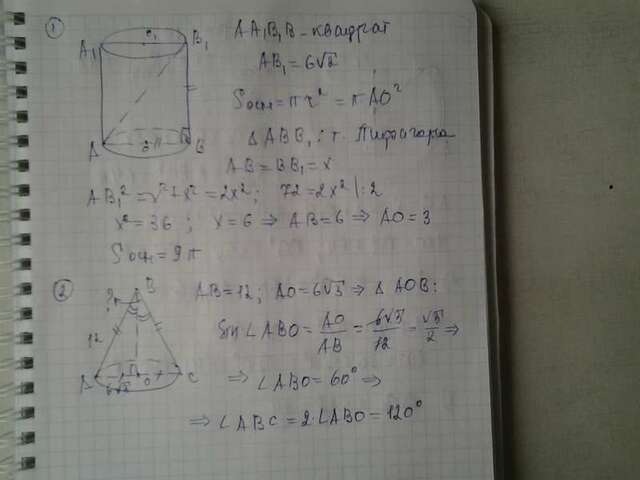 ①
AA₁B₁B - квадрат
AB₁ = 6√2
Sосн = πr² = πAO²
Δ ABB₁ : т. Пифагора
AB = BB₁ = x
AB₁² = x² + x² = 2x² ; 72 = 2x² | : 2
x² = 36 ; x = 6 ⇒ AB = 6 ⇒ AO = 3
Sосн = 9π
A₁ O₁ B₁
A O B
②
AB = 12 ; AO = 6√3 ⇒ Δ AOB :
sin ∠ABO = AO/AB = 6√3/12 = √3/2 ⇒
⇒ ∠ABO = 60° ⇒
⇒ ∠ABC = 2·∠ABO = 120°
? B
12
A O C
6√3